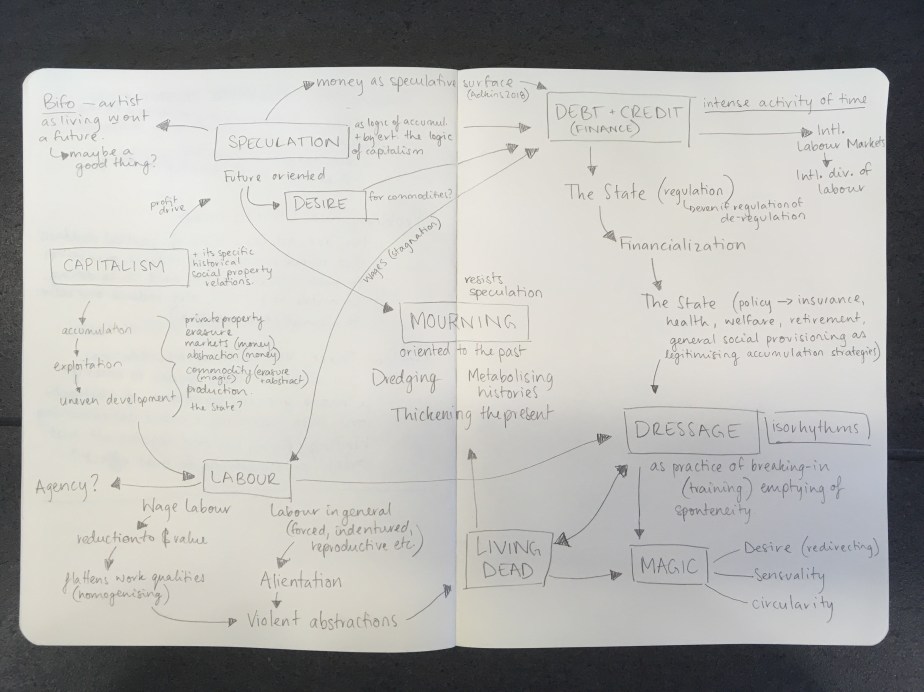 Bifo – artist
as living w out
a future.
maybe a
good thing?
money as speculative surface
(Adkins 2018)
SPECULATION
as logic of accumul.
+ by ext the logic
of capitalism
Future oriented
DESIRE
for commodities?
profit
drive
CAPITALISM
+ its specific
historical
social property
relations.
accumulation
exploitation
uneven development
private property
erasure
markets (money)
abstraction (money)
commodity (erasure
(magic) + abstract)
production
the State?
wages (stagnation)
LABOUR
Agency?
Wage labour
reduction to $ value
flattens work qualities
(homogenising)
Labour in general
(forced, indentured,
reproductive etc.)
Alientation
Violent abstractions
resists
speculation
MOURNING
oriented to the past
Dredging
Metabolising
histories
Thickening the present
LIVING
DEAD
DEBT + CREDIT
(FINANCE)
intense activity of time
Intl.
Labour Markets
Intl. div. of
labour
The State (regulation)
even if regulation of
de-regulation
Financialization
The State (policy → insurance,
health, welfare, retirement,
general social provisioning as
legitimising accumulation strategies)
DRESSAGE
isorhythms
as practice of breaking-in
(training) emptying of
sponteneity
MAGIC
Desire (redirecting)
Sensuality
circularity